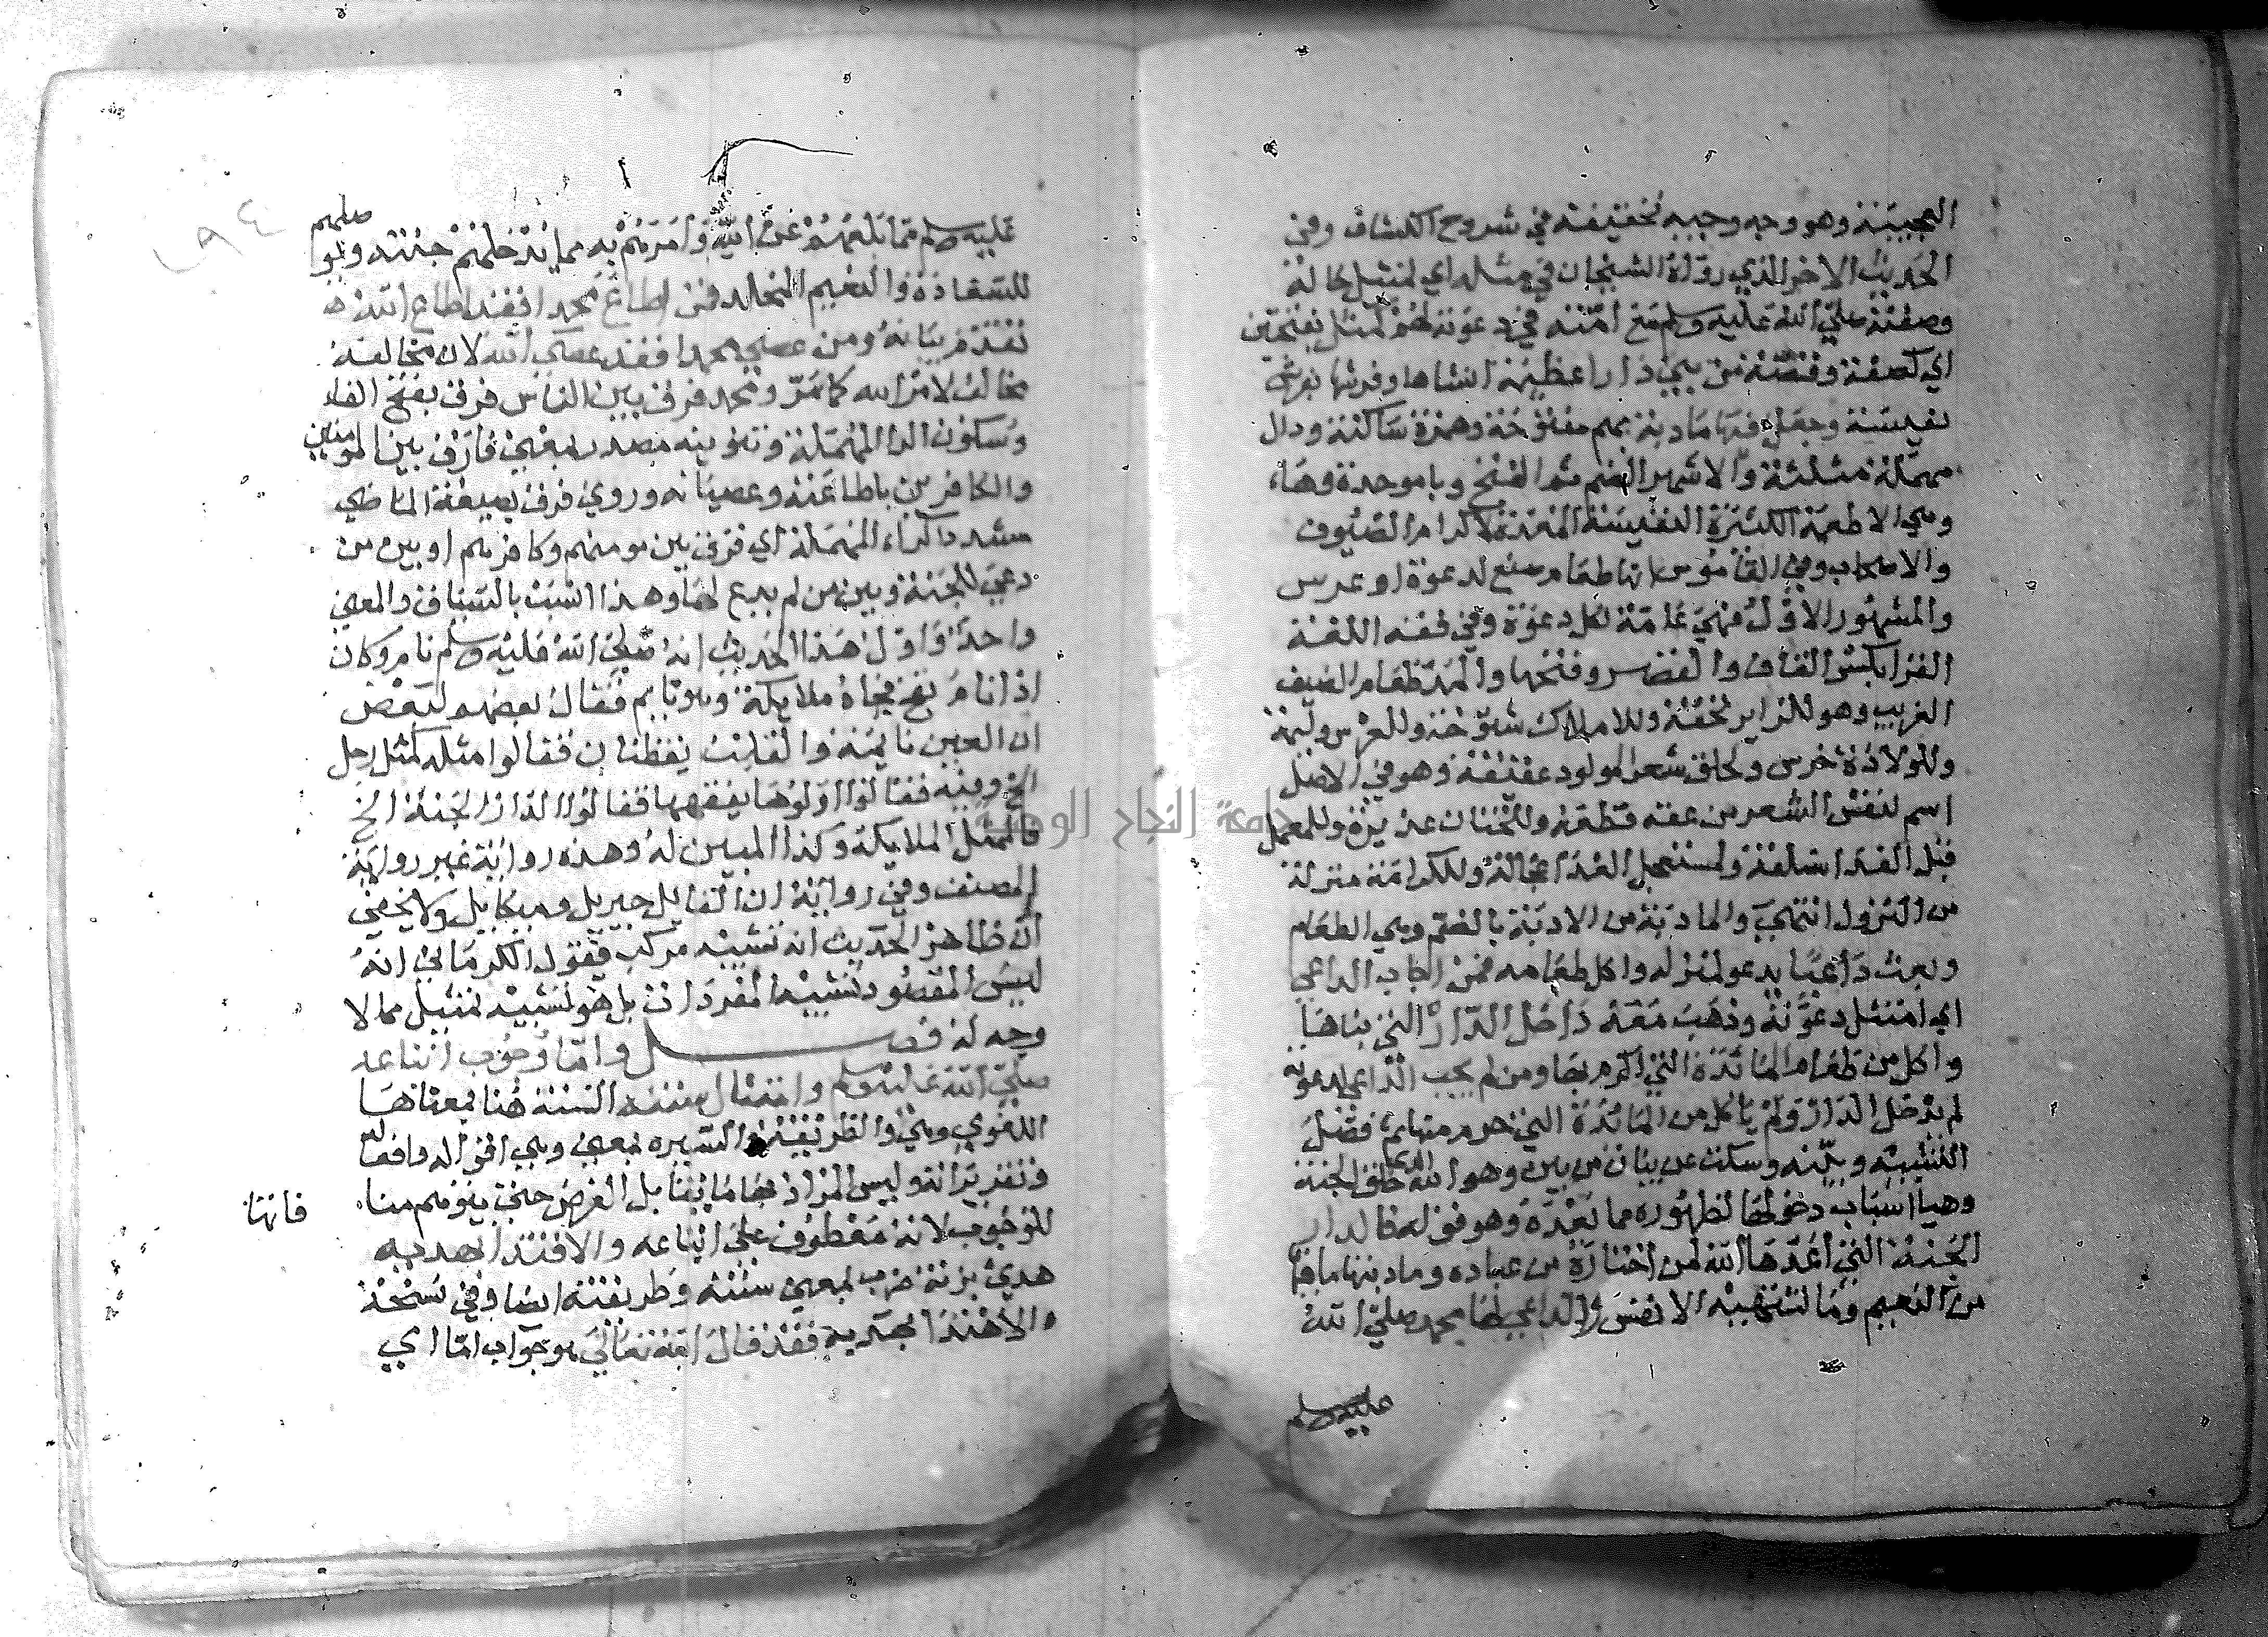 العجيبة وهو وجه وجيه تحقيقه في شروح الكشاف وفي
الحديث الاخر الذي رواه الشيخان في مثله اي لمثيل حاله
وصفته صلى الله عليه وسلم مع امته في دعوته لهم كمثل بفتحتين
اي كصفة وقصة من بني دارا عظيمة انشاها وفرشها بفرش
نفيسة وجعل فيها مادبة بميم مفتوحة وهمزة ساكنة ودال
مهملة مثلثة والاشهر الضم ثم الفتح وبا موحدة وها،
وهي الاطعمة الكثيرة النفيسة المعدة لاكرام الضيوف
والاصحاب وفي القاموس انها طعام صنع لدعوة او عرس
والمشهور الاول فهي عامة لكل دعوة وفي فقه اللغة
القرا بكسر القاف والقصر وفتحها والمد طعام الضيف
الغريب وهو للزاير تحفة وللاملاك شندخة وللعرس وليمة
وللولادة خرس ولحلق شعر المولود عقيقة وهو في الاصل
اسم لنفس الشعر من عقه قطعه وللختان عذيرة وللمعمل
قبل الغدا سلفة ولمستعجل الغدا عجالة وللكرامة منزلة
من النزول انتهى والمادبة من الادبة بالضم وهي الطعام
وبعث داعيا يدعو لمنزله واكل طعامه فمن اجاب الداعي
اي امتثل دعوته وذهب معه داخل الدار التي بناها
واكل من طعام المائدة التي اكرم بها ومن لم يجب الداعي لدعوته
لم يدخل الدار ولم ياكل من المائدة التي حرم منها ثم فصل
التشبيه وبينه وسكت عن بيان من بين وهو الله الذي خلق الجنة
وهيا اسباب دخولها لظهوره مما بعده وهو قوله فالدار
الجنة التي اعدها الله لمن اختاره من عباده ومادبتها ما فيها
من النعيم وما تشتهيه الانفس والداعي لها محمد صلى الله
عليه وسلم
عليه وسلم مما بلغهم عن الله وامرهم به مما يدخلهم جنته ويو صلهم
للسعادة والنعيم المخلد فمن اطاع محمدا فقد اطاع الله
ومن عصى محمدا فقد عصى الله لان مخالفه
مخالف لامر الله كما مر ومحمد فرق بين الناس فرق بفتح الفاء
وسكون الرا المهملة وتنوينه مصدر بمعنى فارق بين المومنين
والكافرين باطاعته وعصيانه وروي فرق بصيغة الماضي
مشدد الراء المهملة اي فرق بين مومنهم وكافرهم او بين من
دعي للجنة وبين من لم يدع لها وهذا انسب بالسياق والمعنى
واحد واول هذا الحديث انه صلى الله عليه وسلم نام وكان
اذا نام نفخ فجاه ملايكة وهو نايم فقال بعضهم لبعض
ان العين نايمة والقلب يقظان فقالوا مثله كمثل رجل
الخ وفيه فقالوا اولوها يفقهها فقالوا الدار الجنة الخ
فالممثل الملايكة وكذا المبين له وهذه رواية غير رواية
المصنف وفي رواية ان القايل جبريل وميكاييل ولا يخفى
ان ظاهر الحديث انه تشبيه مركب فقول الكرماني انه
ليس المقصود تشبيه المفردات بل هو تشبيه تمثيل مما لا
وجه له فصل واما وجوب اتباعه
صلى الله عليه وسلم وامتثال سنته السنة هنا بمعناها
اللغوي وهي الطريقة والسيره بمعنى وهي اقواله وافعاله
وتقريراته وليس المراد بها ما يقابل الفرض حتى يتوهم منا،
فاتها
للوجوب لانه معطوف على اتباعه والاقتدا بهديه
هدي بزنة ضرب بمعنى سنته وطريقته ايضا وفي نسخة
والاهتدا بهديه فقد قال الله تعالى هو جواب اما اي
جامعة النجاح الوطنية